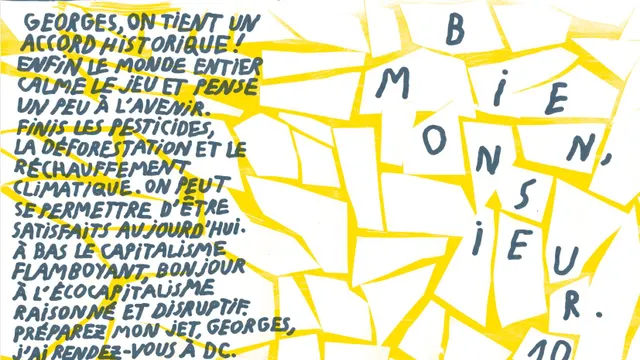 GEORGES, ON TIENT UN
ACCORD HISTORIQUE !
ENFIN LE MONDE ENTIER
CALME LE JEU ET PENSE
UN PEU À L'AVENIR.
FINIS LES PESTICIDES,
LA DÉFORESTATION ET LE
RÉCHAUFFEMENT
CLIMATIQUE. ON PEUT
SE PERMETTRE D'ÊTRE
SATISFAITS AUJOURD'HUI.
À BAS LE CAPITALISME
FLAMBOYANT, BONJOUR
À L'ÉCOCAPITALISME
RAISONNÉ ET DISRUPTIF.
PRÉPAREZ MON JET, GEORGES,
J'AI RENDEZ-VOUS À DC.
BIEN,
MONSIEUR.
10